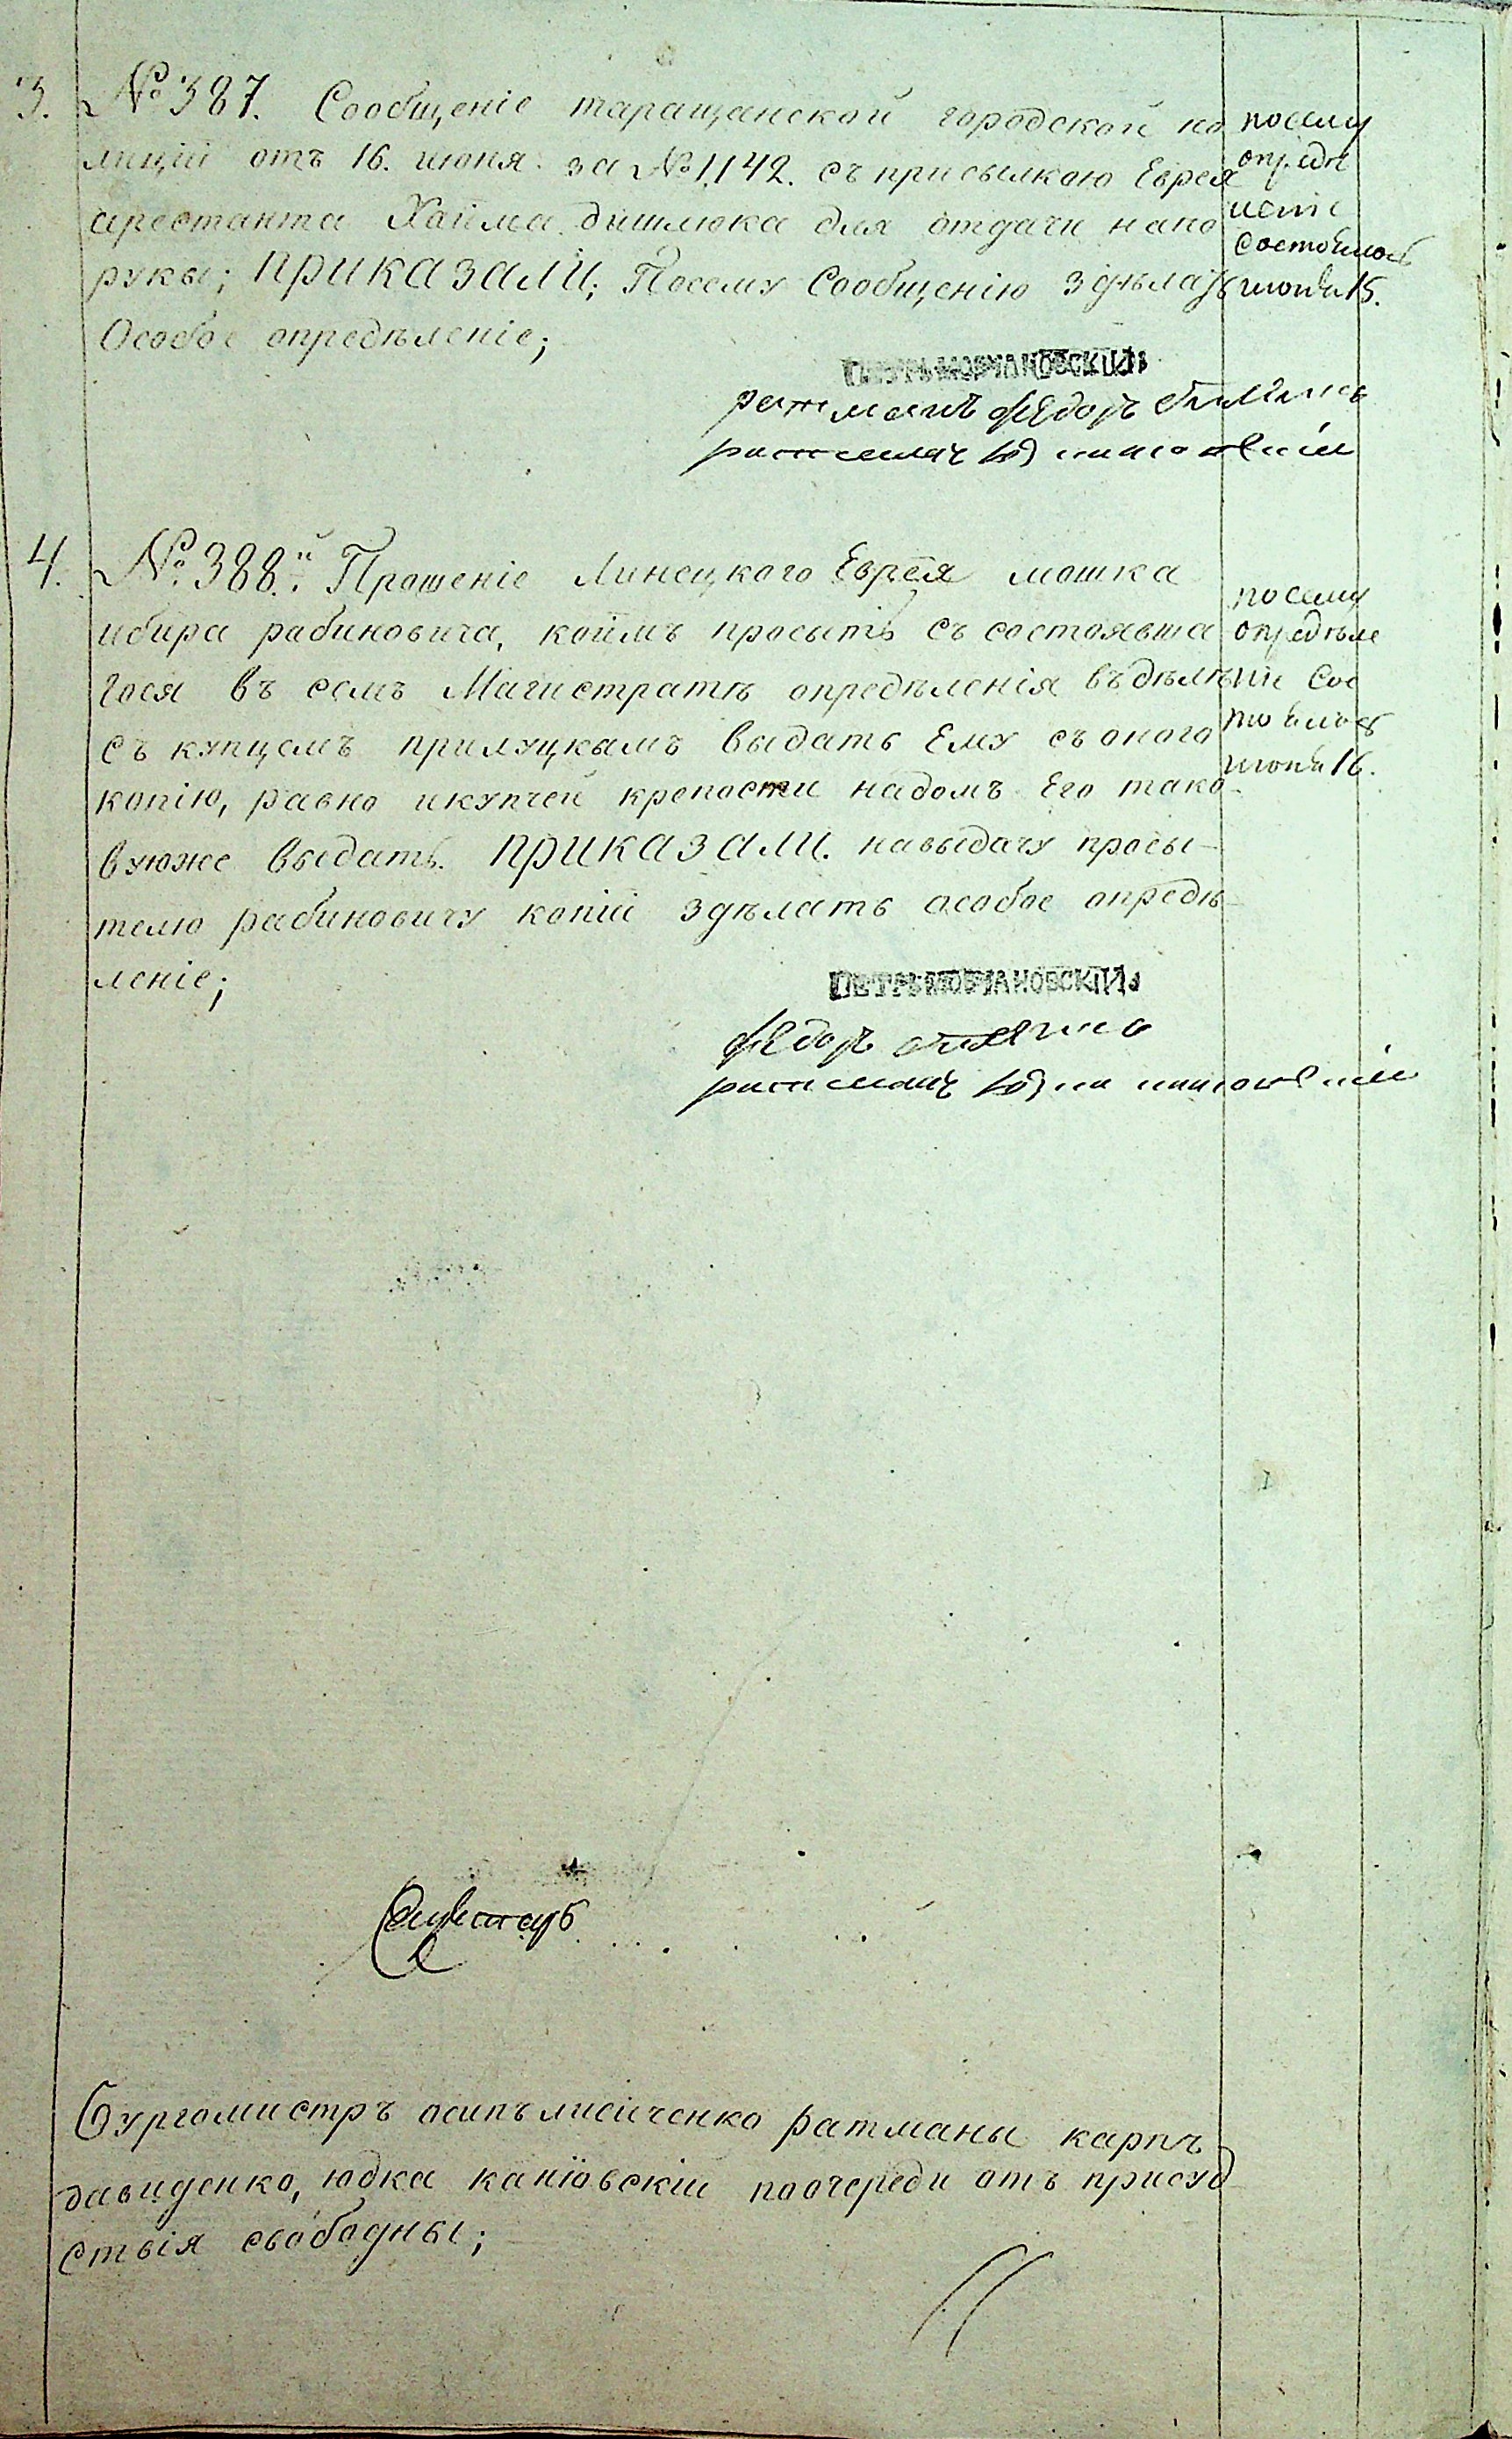 3. № 387. Сообщеніе таращанской городской по
лиціи отъ 16. июня за № 1,142. съ присылкою Еврея
арестанта Хайма дишлюка для отдачи напо
руки; приказали; Посему Сообщенію здѣлать
Особое опредѣленіе;
посему
опредѣ
леніе
состоялось
июня 15.
ратманъ Федоръ
ратманъ
4. № 388.й Прошеніе Линецкого Еврея мошка
ибира рабиновича, коимъ просытъ съ состоявша
гося въ семъ Магистратѣ опредѣленія въ дѣлѣ
съ купцемъ прилуцкимъ выдать Ему съ оного
копію, равно и купчей крепости на домъ Его тако
вуюже выдать. приказали. на выдачу просы-
телю рабиновичу копій здѣлать особое опредѣ
леніе;
посему
опредѣле
ніе сос
тоялось
июня 16.
Федоръ
ратманъ
Бургомистръ осипъ лисиченко ратманы карпъ
давиденко, юдка каніовскій поочереди отъ присуд
ствія свободны;